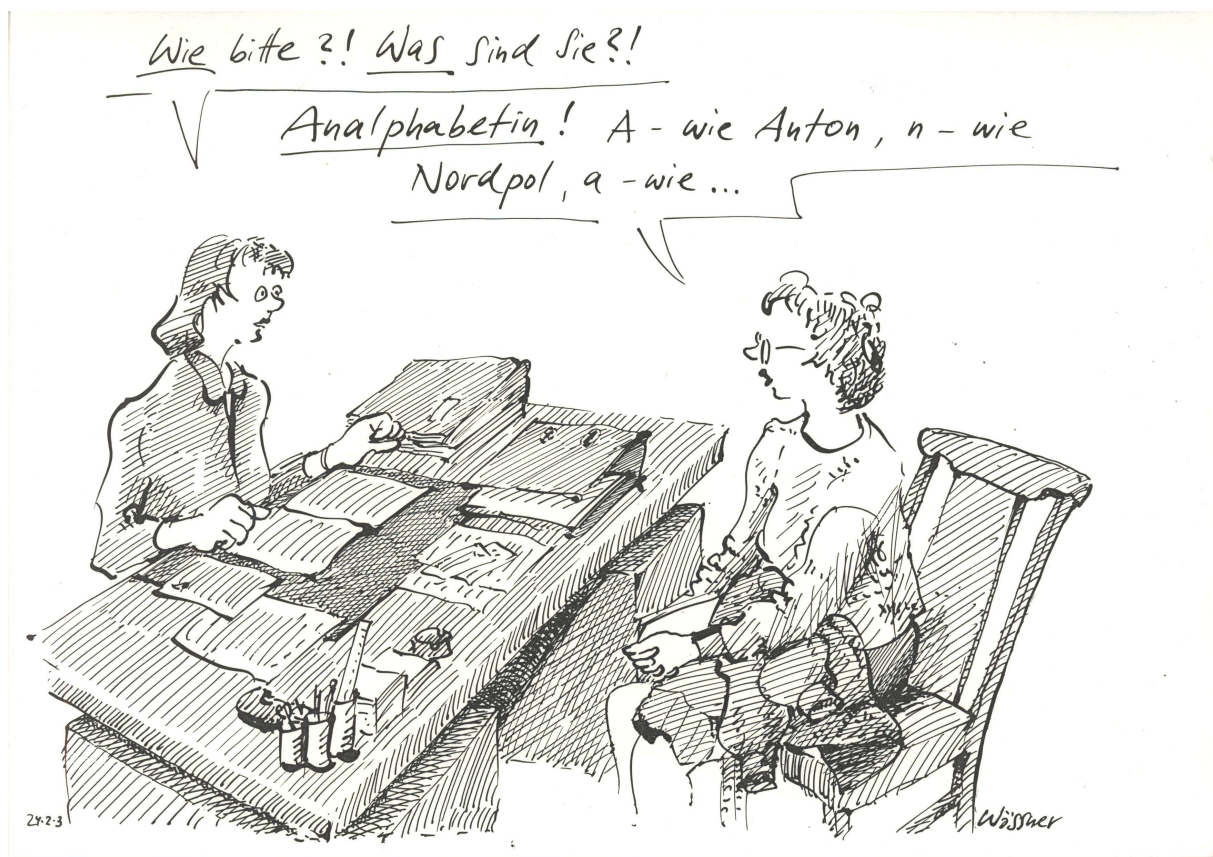 Wie bitte?! Was sind Sie?!
Analphabetin! A - wie Anton, n - wie
Nordpol, a - wie...
24.2.3
Wössner